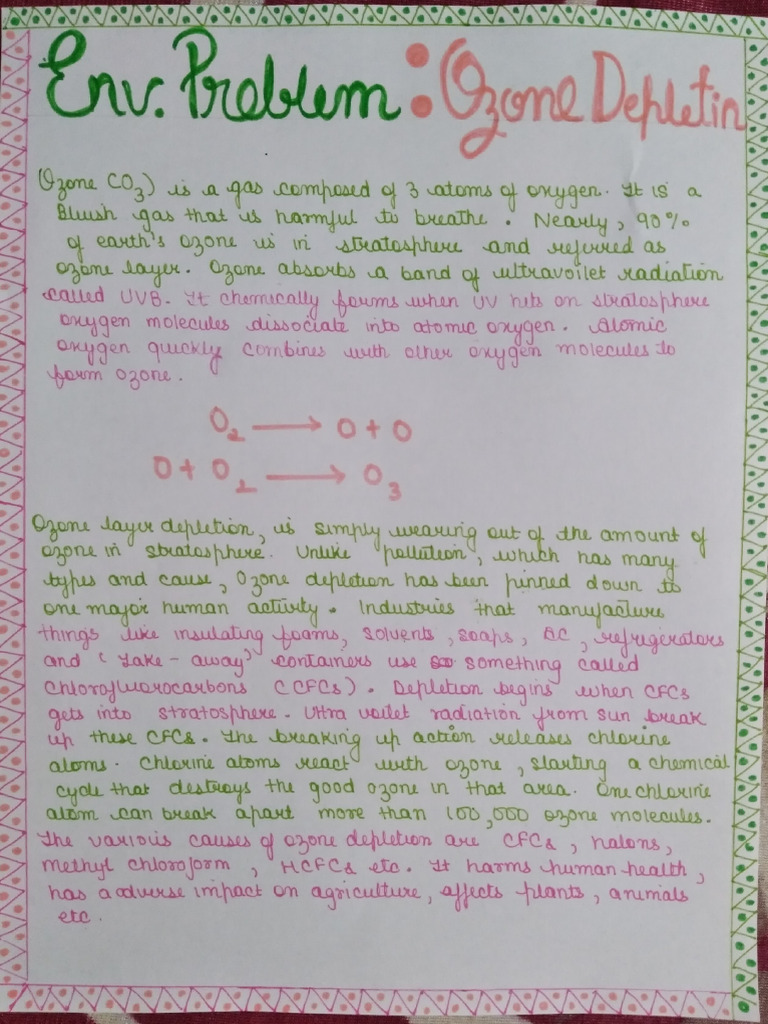 Env. Problem : Ozone Depletin
Ozone CO3) is a gas composed of 3 atoms of oxygen. It is a
Bluish gas that is harmful to breathe. Nearly, 90%
of earth's ozone is in stratosphere and referred as
ozone layer. Ozone absorbs a band of ultravoilet radiation
called UVB. It chemically forms when UV hits on stratosphere
oxygen molecules dissociate into atomic oxygen. Atomic
oxygen quickly combines with other oxygen molecules to
form ozone.
O2 → O + O
O + O2 → O3
Ozone layer depletion, is simply wearing out of the amount of
ozone in stratosphere. Unlike pollution, which has many
types and cause, Ozone depletion has been pinned down to
one major human activity. Industries that manufacture
things like insulating foams, solvents, soaps, AC, refrigerators
and 'Take-away' containers use something called
Chlorofluorocarbons (CFCs). Depletion begins when CFCs
gets into stratosphere. Ultra voilet radiation from sun break
up these CFCs. The breaking up action releases chlorine
atoms. Chlorine atoms react with ozone, starting a chemical
cycle that destroys the good ozone in that area. One chlorine
atom can break apart more than 100,000 ozone molecules.
The various causes of ozone depletion are CFCs, halons,
methyl chloroform, HCFCs etc. It harms human health,
has adverse impact on agriculture, affects plants, animals
etc.